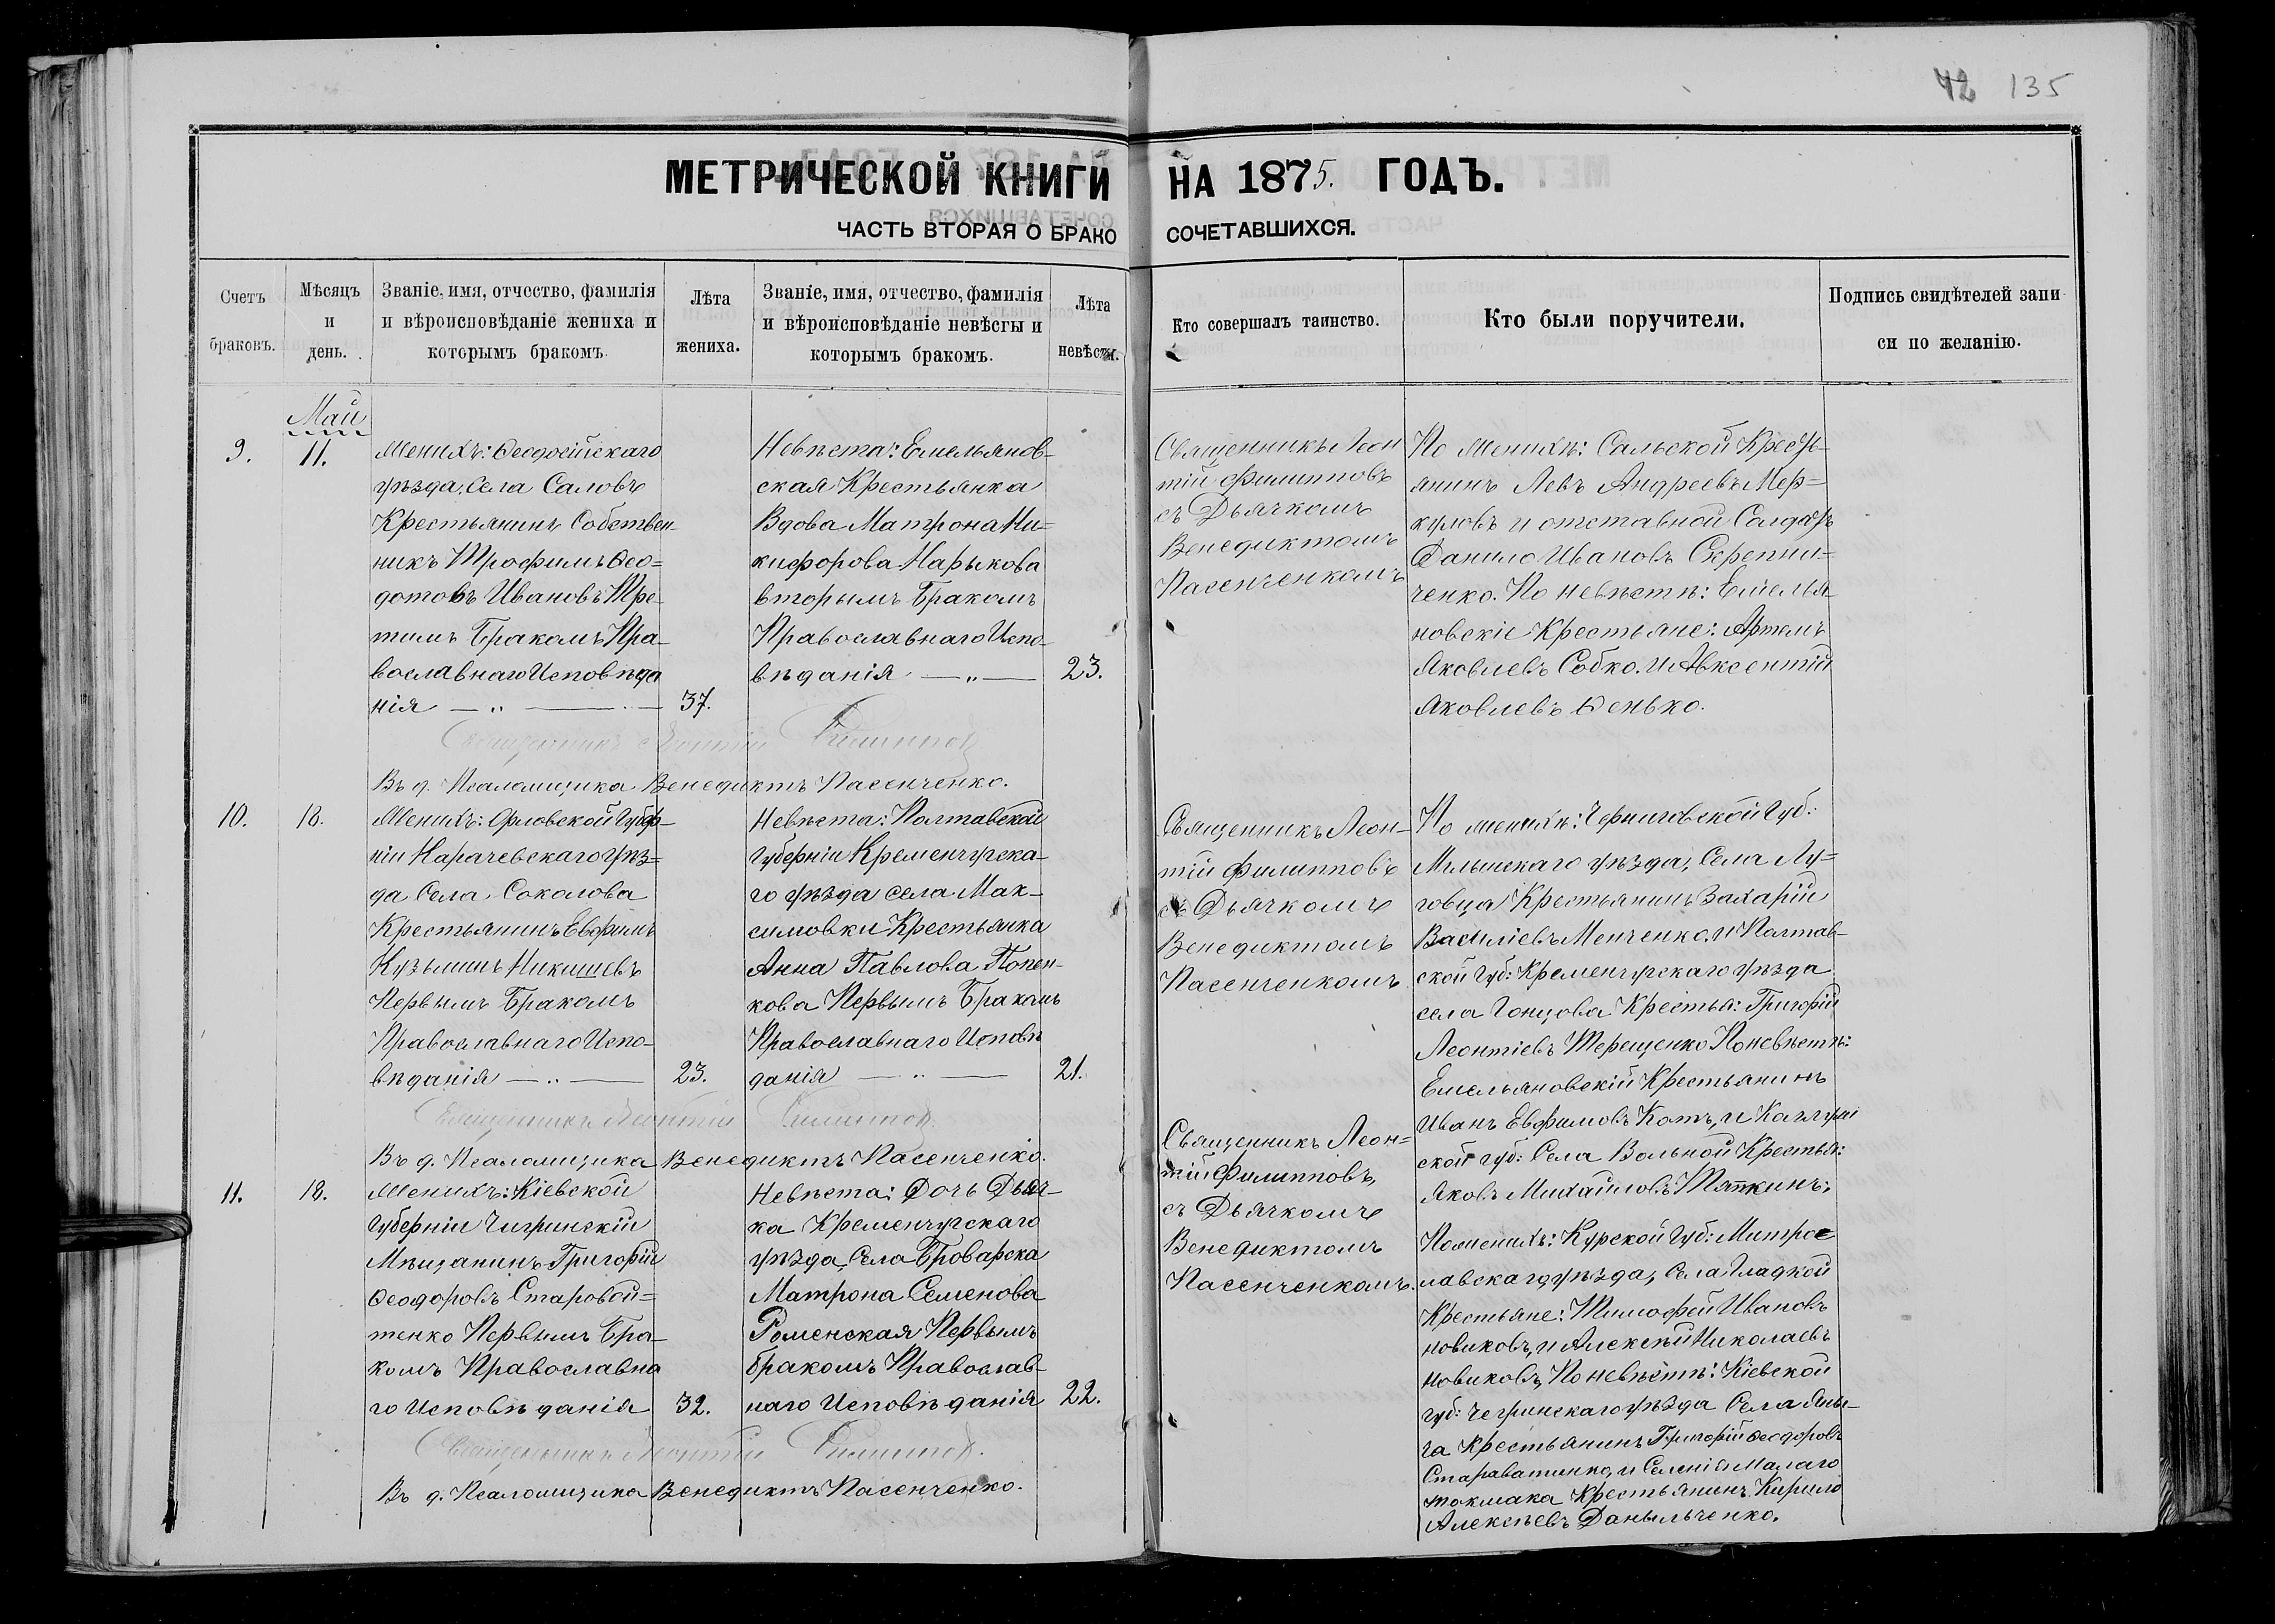 42 135
МЕТРИЧЕСКОЙ КНИГИ НА 1875. ГОДЪ.
ЧАСТЬ ВТОРАЯ О БРАКО СОЧЕТАВШИХСЯ.
Счетъ
браковъ.
Мѣсяцъ
и
день.
Званіе, имя, отчество, фамилія
и вѣроисповѣданіе жениха и
которымъ бракомъ.
Лѣта
жениха.
Званіе, имя, отчество, фамилія
и вѣроисповѣданіе невѣсты и
которымъ бракомъ.
Лѣта
невѣсты.
Кто совершалъ таинство.
Кто были поручители.
Подпись свидѣтелей запи
си по желанію.
Май
9.
11.
Женихъ: Ѳеодосійскаго
уѣзда, Села Саловъ
Крестьянинъ Собствен-
никъ Трофимъ Ѳео=
дотовъ Ивановъ Тре-
тимъ Бракомъ Пра-
вославнаго Исповѣда
нія — „ —
37.
Невѣста: Емельянов-
ская Крестьянка
Вдова Матрона Ни=
кифорова Нарыкова
вторымъ Бракомъ
Православнаго Испо-
вѣданія — „ —
23.
Священникъ Леон
тій Филипповъ
съ Дьячкомъ
Венедиктомъ
Пасенченкомъ
По женихѣ: Сальской Кресть-
янинъ Левъ Андреевъ Мер=
куловъ и отставной Солдатъ
Данило Ивановъ Скрепни=
ченко. По невѣстѣ: Емелья
новскіе Крестьяне: Артемъ
Яковлевъ Собко. и Авксентій
Яковлевъ Ѳенько.
Священникъ Леонтій Филипповъ
Въ д. Псаломщика Венедиктъ Пасенченко.
10.
18.
Женихъ: Орловской Губер-
ніи Карачевскаго уѣз=
да Села Соколова
Крестьянинъ Евфимъ
Кузьминъ Никишевъ
Первымъ Бракомъ
Православнаго Испо-
вѣданія — „ —
23.
Невѣста: Полтавской
Губерніи Кременчугска-
го уѣзда села Мак-
симовки Крестьянка
Анна Павлова Попен-
кова Первымъ Бракомъ
Православнаго Исповѣ
данія — „ —
21.
Священникъ Леон-
тій Филипповъ
съ Дьячкомъ
Венедиктомъ
Пасенченкомъ
По женихѣ: Черниговской Губ:
Мглинскаго уѣзда, Села Лу=
говца Крестьянинъ Захарій
Василіевъ Менченко. и Полтав-
ской Губ: Кременчугскаго уѣзда
села Гонцова Крестья: Григорій
Леонтіевъ Терещенко По невѣстѣ:
Емельяновскій Крестьянинъ
Иванъ Евфимовъ Котъ, и Калуж
ской губ: Села Вольной Крестья:
Яковъ Михайловъ Тяпкинъ;
Священникъ Леонтій Филипповъ
Въ д. Псаломщика Венедиктъ Пасенченко.
11.
18.
Женихъ: Кіевской
Губерніи Чигринскій
Мѣщанинъ Григорій
Ѳеодоровъ Старовой=
тенко Первымъ Бра-
комъ Православна
го Исповѣданія
32.
Невѣста: Дочь Дьяч-
ка Кременчугскаго
уѣзда, Села Броварска
Матрона Семенова
Роменская Первымъ
бракомъ Православ-
наго Исповѣданія
22.
Священникъ Леон=
тій Филипповъ,
съ Дьячкомъ
Венедиктомъ
Пасенченкомъ.
По женихѣ: Курской Губ: Митро
славскаго уѣзда, Села Гладкой
Крестьяне: Тимофей Ивановъ
Новиковъ, и Алексѣй Николаевъ
Новиковъ, По невѣстѣ: Кіевской
губ: Чегринскаго уѣзда Села Яны-
ча Крестьянинъ Григорій Ѳеодоровъ
Староватенко, и Селенія Малаго
токмака Крестьянинъ Кирило
Алексѣевъ Данильченко.
Священникъ Леонтій Филипповъ.
Въ д. Псаломщика Венедиктъ Пасенченко.